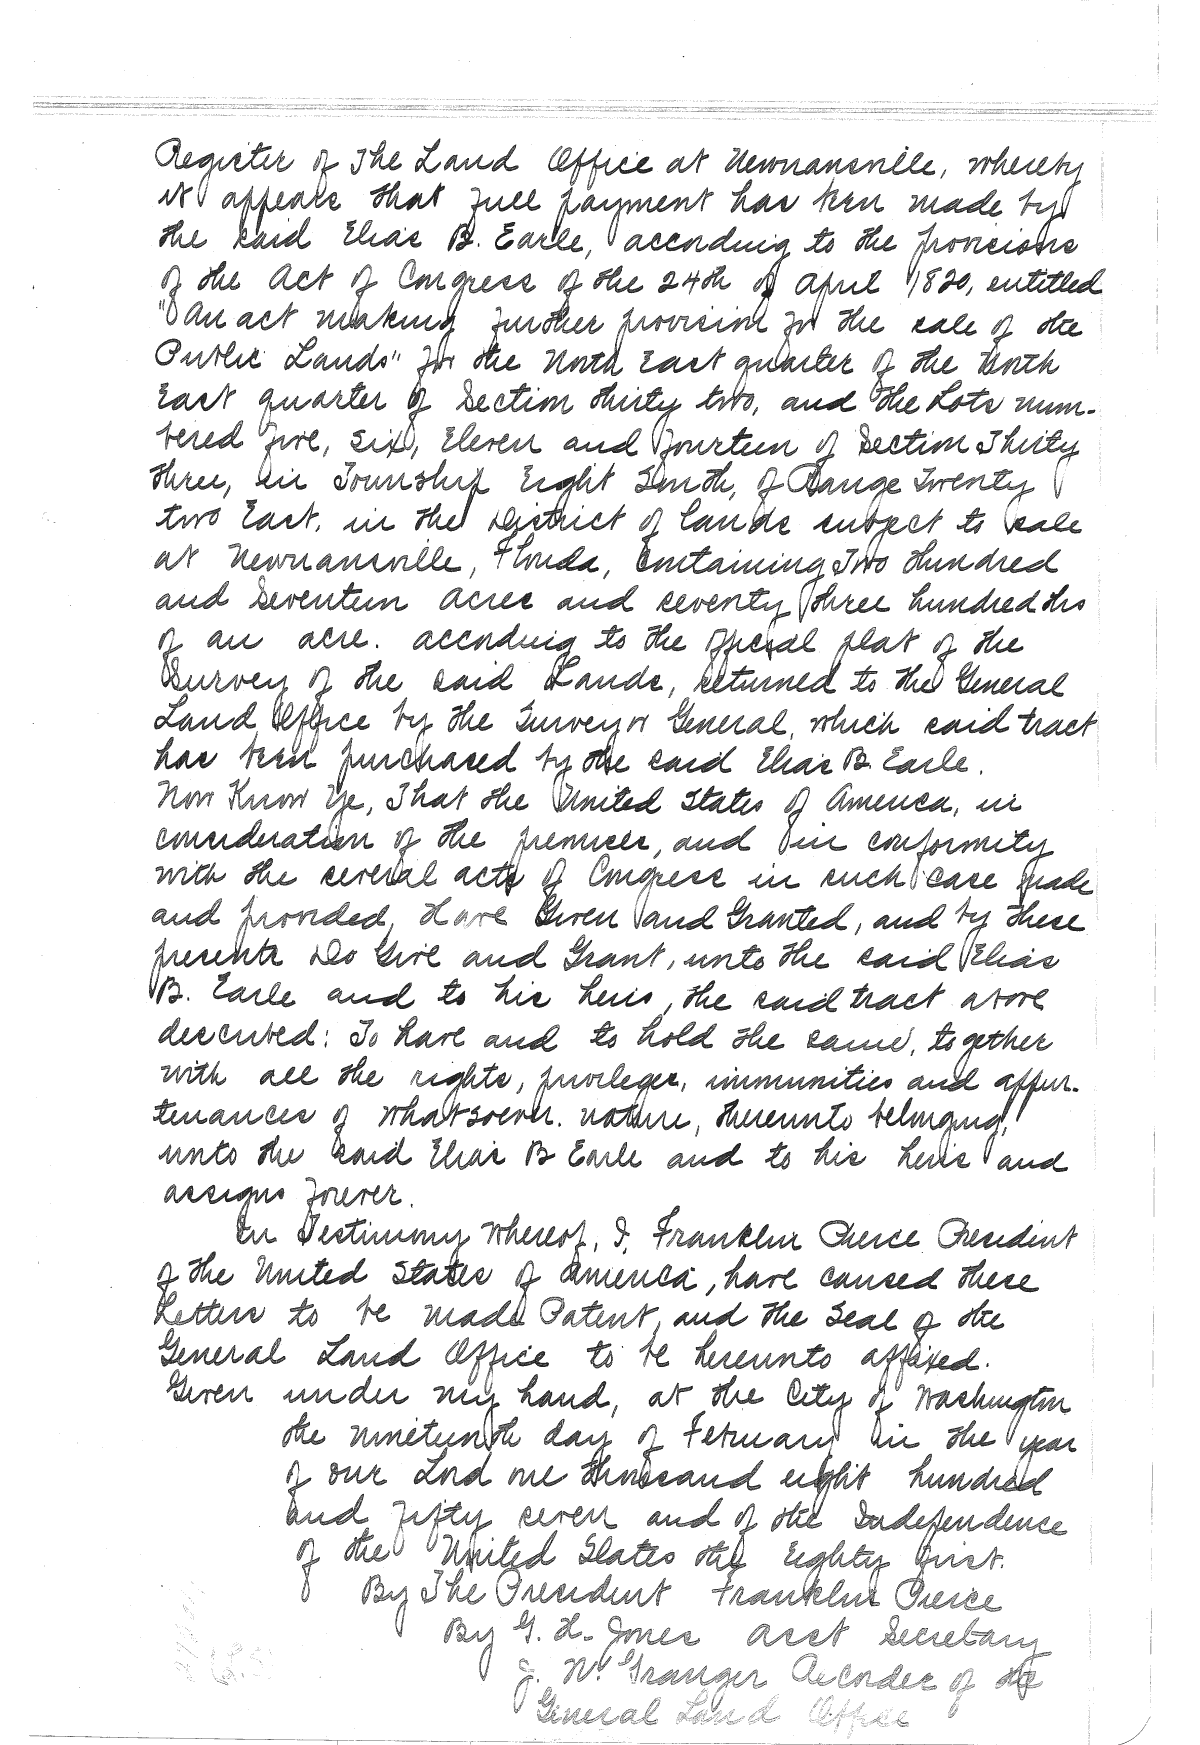 Register of The Land Office at Newnansville, whereby
it appears that full payment has been made by
the said Elias B. Earle, according to the provisions
of the Act of Congress of the 24th of April 1820, entitled
"An act making further provision for the sale of the
Public Lands" for the North East quarter of the North
East quarter of Section thirty two, and the Lots num-
bered five, six, Eleven and fourteen of Section Thirty
three, in Township Eight South, of Range Twenty
two East, in the District of lands subject to sale
at Newnansville, Florida, Containing Two Hundred
and Seventeen Acres and seventy three hundredths
of an acre. according to the official plat of the
Survey of the said Lands, returned to the General
Land Office by the Surveyor General, which said tract
has been purchased by the said Elias B. Earle.
Now Know Ye, That the United States of America, in
consideration of the premises, and in conformity
with the several acts of Congress in such case made
and provided, Have Given and Granted, and by these
presents Do Give and Grant, unto the said Elias
B. Earle and to his heirs, the said tract above
described: To have and to hold the same, together
with all the rights, privileges, immunities and appur-
tenances of whatsoever. nature, thereunto belonging,
unto the said Elias B Earle and to his heirs and
assigns forever.
In Testimony Whereof, I, Franklin Pierce President
of the United States of America, have caused these
Letters to be made Patent, and the Seal of the
General Land Office to be hereunto affixed.
Given under my hand, at the City of Washington
the nineteenth day of February in the year
of our Lord one thousand eight hundred
and fifty seven and of the Independence
of the United States the Eighty first.
By The President Franklin Pierce
By G. H. Jones asst Secretary
J. N. Granger Recorder of the
General Land Office